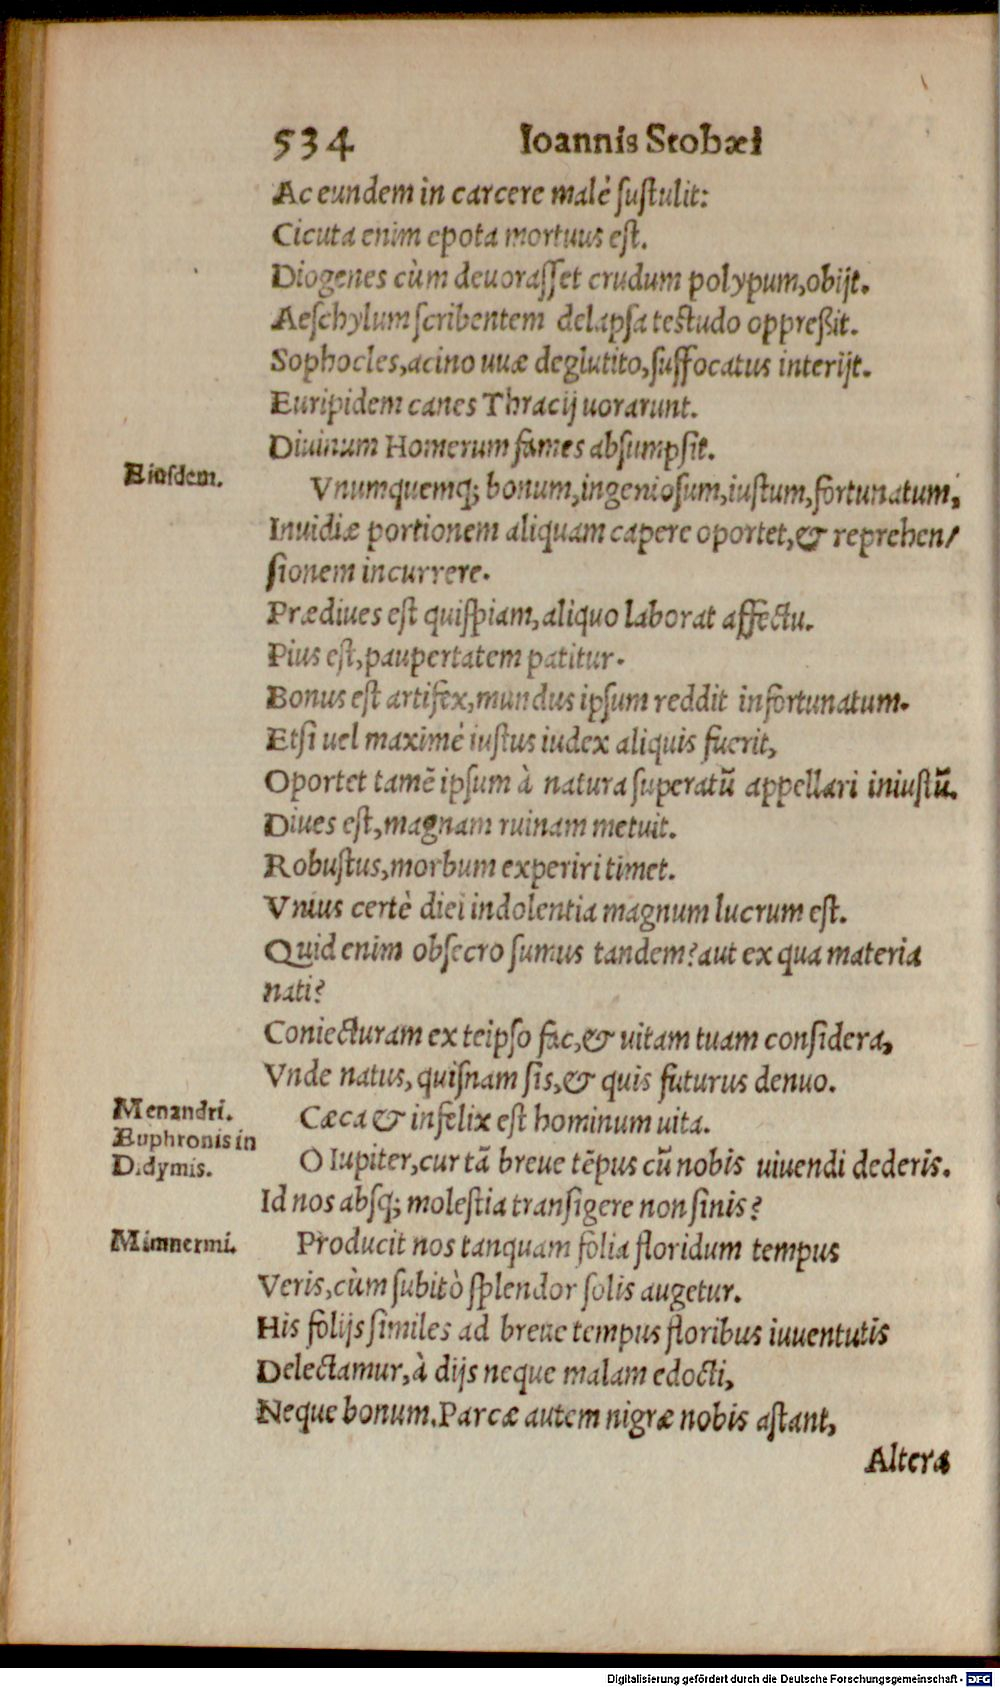 534 Ioannis Stobæi
Ac eundem in carcere malè ſuſtulit:
Cicuta enim epota mortuus eſt.
Diogenes cùm deuoraſſet crudum polypum, obijt.
Aeſchylum ſcribentem delapſa teſtudo oppreßit.
Sophocles, acino uuæ deglutito, ſuffocatus interijt.
Euripidem canes Thracij uorarunt.
Diuinum Homerum fames abſumpſit.
Eiuſdem.
Vnumquemq; bonum, ingenioſum, iuſtum, fortunatum,
Inuidiæ portionem aliquam capere oportet, & reprehen/
ſionem incurrere.
Prædiues eſt quiſpiam, aliquo laborat affectu.
Pius eſt, paupertatem patitur.
Bonus eſt artifex, mundus ipſum reddit infortunatum.
Etſi uel maximè iuſtus iudex aliquis fuerit,
Oportet tamē ipſum à natura ſuperatū appellari iniuſtū.
Diues eſt, magnam ruinam metuit.
Robuſtus, morbum experiri timet.
Vnius certè diei indolentia magnum lucrum eſt.
Quid enim obſecro ſumus tandem? aut ex qua materia
nati?
Coniecturam ex teipſo fac, & uitam tuam conſidera,
Vnde natus, quiſnam ſis, & quis futurus denuo.
Menandri.
Cæca & infelix eſt hominum uita.
Euphronis in
Didymis.
O Iupiter, cur tā breue tēpus cū nobis uiuendi dederis.
Id nos abſq; moleſtia tranſigere non ſinis?
Mimnermi.
Producit nos tanquam folia floridum tempus
Veris, cùm ſubitò ſplendor ſolis augetur.
His folijs ſimiles ad breue tempus floribus iuuentutis
Delectamur, à dijs neque malam edocti,
Neque bonum. Parcæ autem nigræ nobis aſtant,
Altera
Digitalisierung gefördert durch die Deutsche Forschungsgemeinschaft - DFG